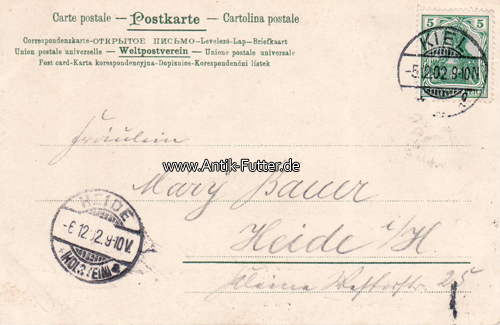 Carte postale — Postkarte — Cartolina postale
Correspondenskarte-ОТКРЫТОЕ ПИСЬМО-Levelező-Lap-Briefkaart
Union postale universelle — Weltpostverein — Unione postale universale
Post card-Karta korespondencyjna-Dopisnice-Korespondenční lístek
5 5
KIEL
-5.12.02.9-10V.
Fräulein
www.Antik-Futter.de
Mary Bauer
HEIDE
-6.12.02.9-10V.
(HOLSTEIN)
Heide i/H.
Kleine Westerstr 25